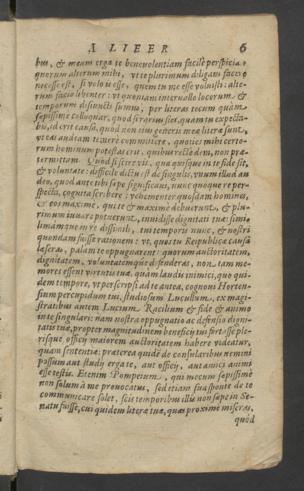 I LIBER 6
bus, & meam erga te beneuolentiam facile perspicia.
quorum alterum mihi, vt te plurimum diligam facere
necesse est, si volo is esse, quem tu me esse voluisti: alte-
rum facio libenter: vt quoniam interuallo locorum &
temporum disiuncti sumus, per literas tecum quàm
sæpissime colloquar, quod si rarius fiet, quàm tu expecta-
bis, id erit causa, quòd non eius generis meæ literæ sunt,
vt eas audeam temere committere, quoties mihi certo-
rum hominum potestas erit, quibus rectè dem, non præ-
termittam. Quòd si scire vis, qua quisque in te fide sit,
& voluntate: difficile dictu est de singulis, vnum illud au
deo, quod ante tibi sæpe significaui, nunc quoque re per-
specta, cognita scribere: vehementer quosdam homines,
& eos maximè, qui te & maxime debuerunt, & plu-
rimum iuuare potuerunt, inuidisse dignitati tuæ: simi-
limamque in re dissimili, tui temporis nunc, & nostri
quondam fuisse rationem: vt, quos tu Reipublicæ causa
læseras, palam te oppugnarent: quorum auctoritatem,
dignitatem, voluntatemque defenderas, non tam me-
mores essent virtutis tuæ, quàm laudis inimici, quo qui-
dem tempore, vt perscripsi ad te antea, cognoui Horten-
sium percupidum tui, studiosum Lucullum, ex magi-
stratibus autem Lucium Racilium & fide & animo
singulari: nam nostra oppugnatio ac defensio digni-
tatis tuæ, propter magnitudinem beneficij tui fortasse ple-
risque officij maiorem auctoritatem habere videatur,
quàm sententiæ: præterea quidem de consularibus nemini
possum aut studij erga te, aut officij, aut amici animi
esse testis. Etenim Pompeium, qui mecum sæpissimè
non solum à me prouocatus, sed etiam sua sponte de te
communicare solet, scis temporibus illis non sæpe in Se-
natu fuisse, cui quidem literæ tuæ, quas proxime miseras,
quod